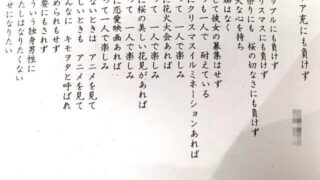 ア充にも負けず
ップルにも負けず
リスマスにも負けず
祭りにも 桜の切なさにも負けず
夫な心を持ち
話はなく
して彼女の募集はせず
も一人で 耐えている
にクリスマスイルミネーションあれば
って一人で楽しみ
に花火大会あれば
って一人で楽しみ
に桜の美しい花見があれば
って一人で楽しみ
に恋愛映画あれば
って一人で楽しみ
ないときは アニメを見て
しいときも アニメを見て
んなに キモヲタと呼ばれ
められもせず
要にもされず
ういう独身男性に
たしはなりたくない
せになりたい